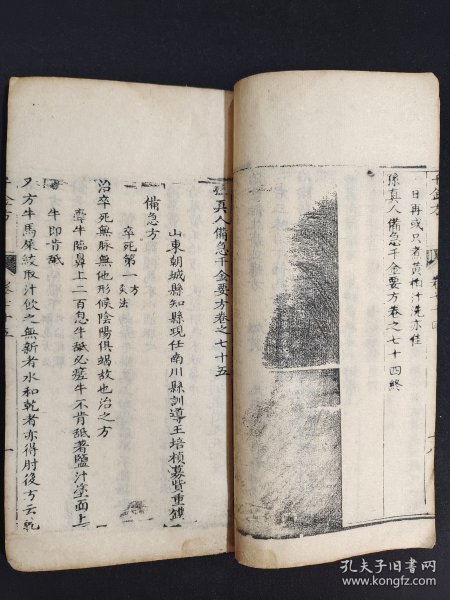 日再或只煮黃柏汁洗亦佳
孫真人備急千金要方卷之七十四終
孫真人備急千金要方卷之七十五
山東朝城縣知縣現任南川縣訓導王培楨募貲重鐫
備急方
卒死第一 方 灸法
治卒死無脉無他形候陰陽俱竭故也治之方
牽牛臨鼻上二百息牛舐必瘥牛不肯舐著鹽汁塗面上
牛即肯舐
又方牛馬屎絞取汁飲之無新者水和乾者亦得肘後方云乾
千金方
孔夫子旧书网
www.kongfz.com